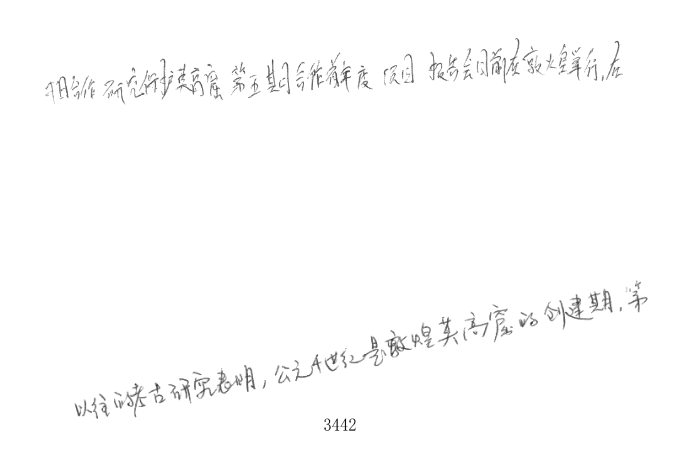 期合作研究保护莫高窟第五期合作前年度项目报告会日前在敦煌举行,在
以往的考古研究表明,公元4世纪是敦煌莫高窟的创建期,第
3442